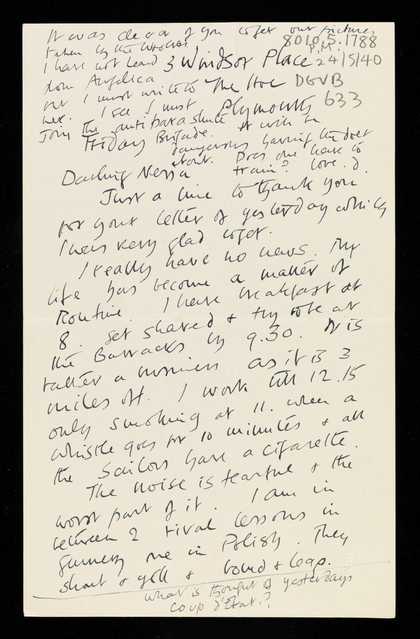 It was clever of you to get our pictures
taken by the
I have not heard
from Angelica
but I must write to
her. I see I must
Join the anti Parachute
Hiday Brigade. It will be
dangerous having the Doet
about. Does one have to
train? Love. D.
8010.5.1788
P.M.
3 Windsor Place 24/5/40
The Hoe DGVB
Plymouth 633
Darling Nessa
Just a line to thank you
for your letter of yesterday which
I was very glad to get.
I really have no news. My
life has become a matter of
Routine. I have breakfast at
8. get shaved & try to be at
the Barracks by 9.30. It is
rather a business as it is 3
miles off. I work till 12.15
only smoking at 11. when a
whistle goes for 10 minutes & all
the Sailors have a cigarette.
The noise is fearful & the
worst part of it. I am in
between 2 rival lessons in
Gunnery one in Polish. They
shout & yell & bound & leap.
what is thought of yesterdays
coup d'état?